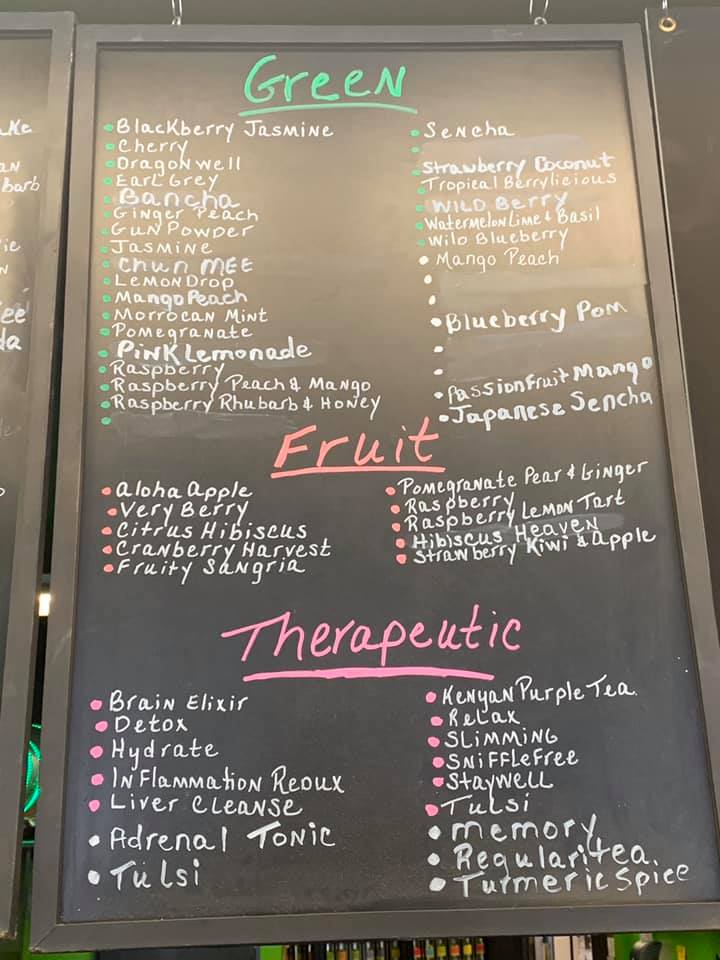 Green
Blackberry Jasmine
Cherry
Dragonwell
Earl Grey
Bancha
Ginger Peach
Gun Powder
Jasmine
Chun Mee
Lemon Drop
Mango Peach
Morrocan Mint
Pomegranate
Pink Lemonade
Raspberry
Raspberry Peach & Mango
Raspberry Rhubarb & Honey
Sencha
Strawberry Coconut
Tropical Berrylicious
Wild Berry
Watermelon Lime & Basil
Wild Blueberry
Mango Peach
Blueberry Pom
Passionfruit Mango
Japanese Sencha
Fruit
Aloha Apple
Very Berry
Citrus Hibiscus
Cranberry Harvest
Fruity Sangria
Pomegranate Pear & Ginger
Raspberry
Raspberry Lemon Tart
Hibiscus Heaven
Strawberry Kiwi & Apple
Therapeutic
Brain Elixir
Detox
Hydrate
Inflammation Redux
Liver Cleanse
Adrenal Tonic
Tulsi
Kenyan Purple Tea
Relax
Slimming
Sniffle Free
Staywell
Tulsi
memory
Regularitea.
Turmeric Spice